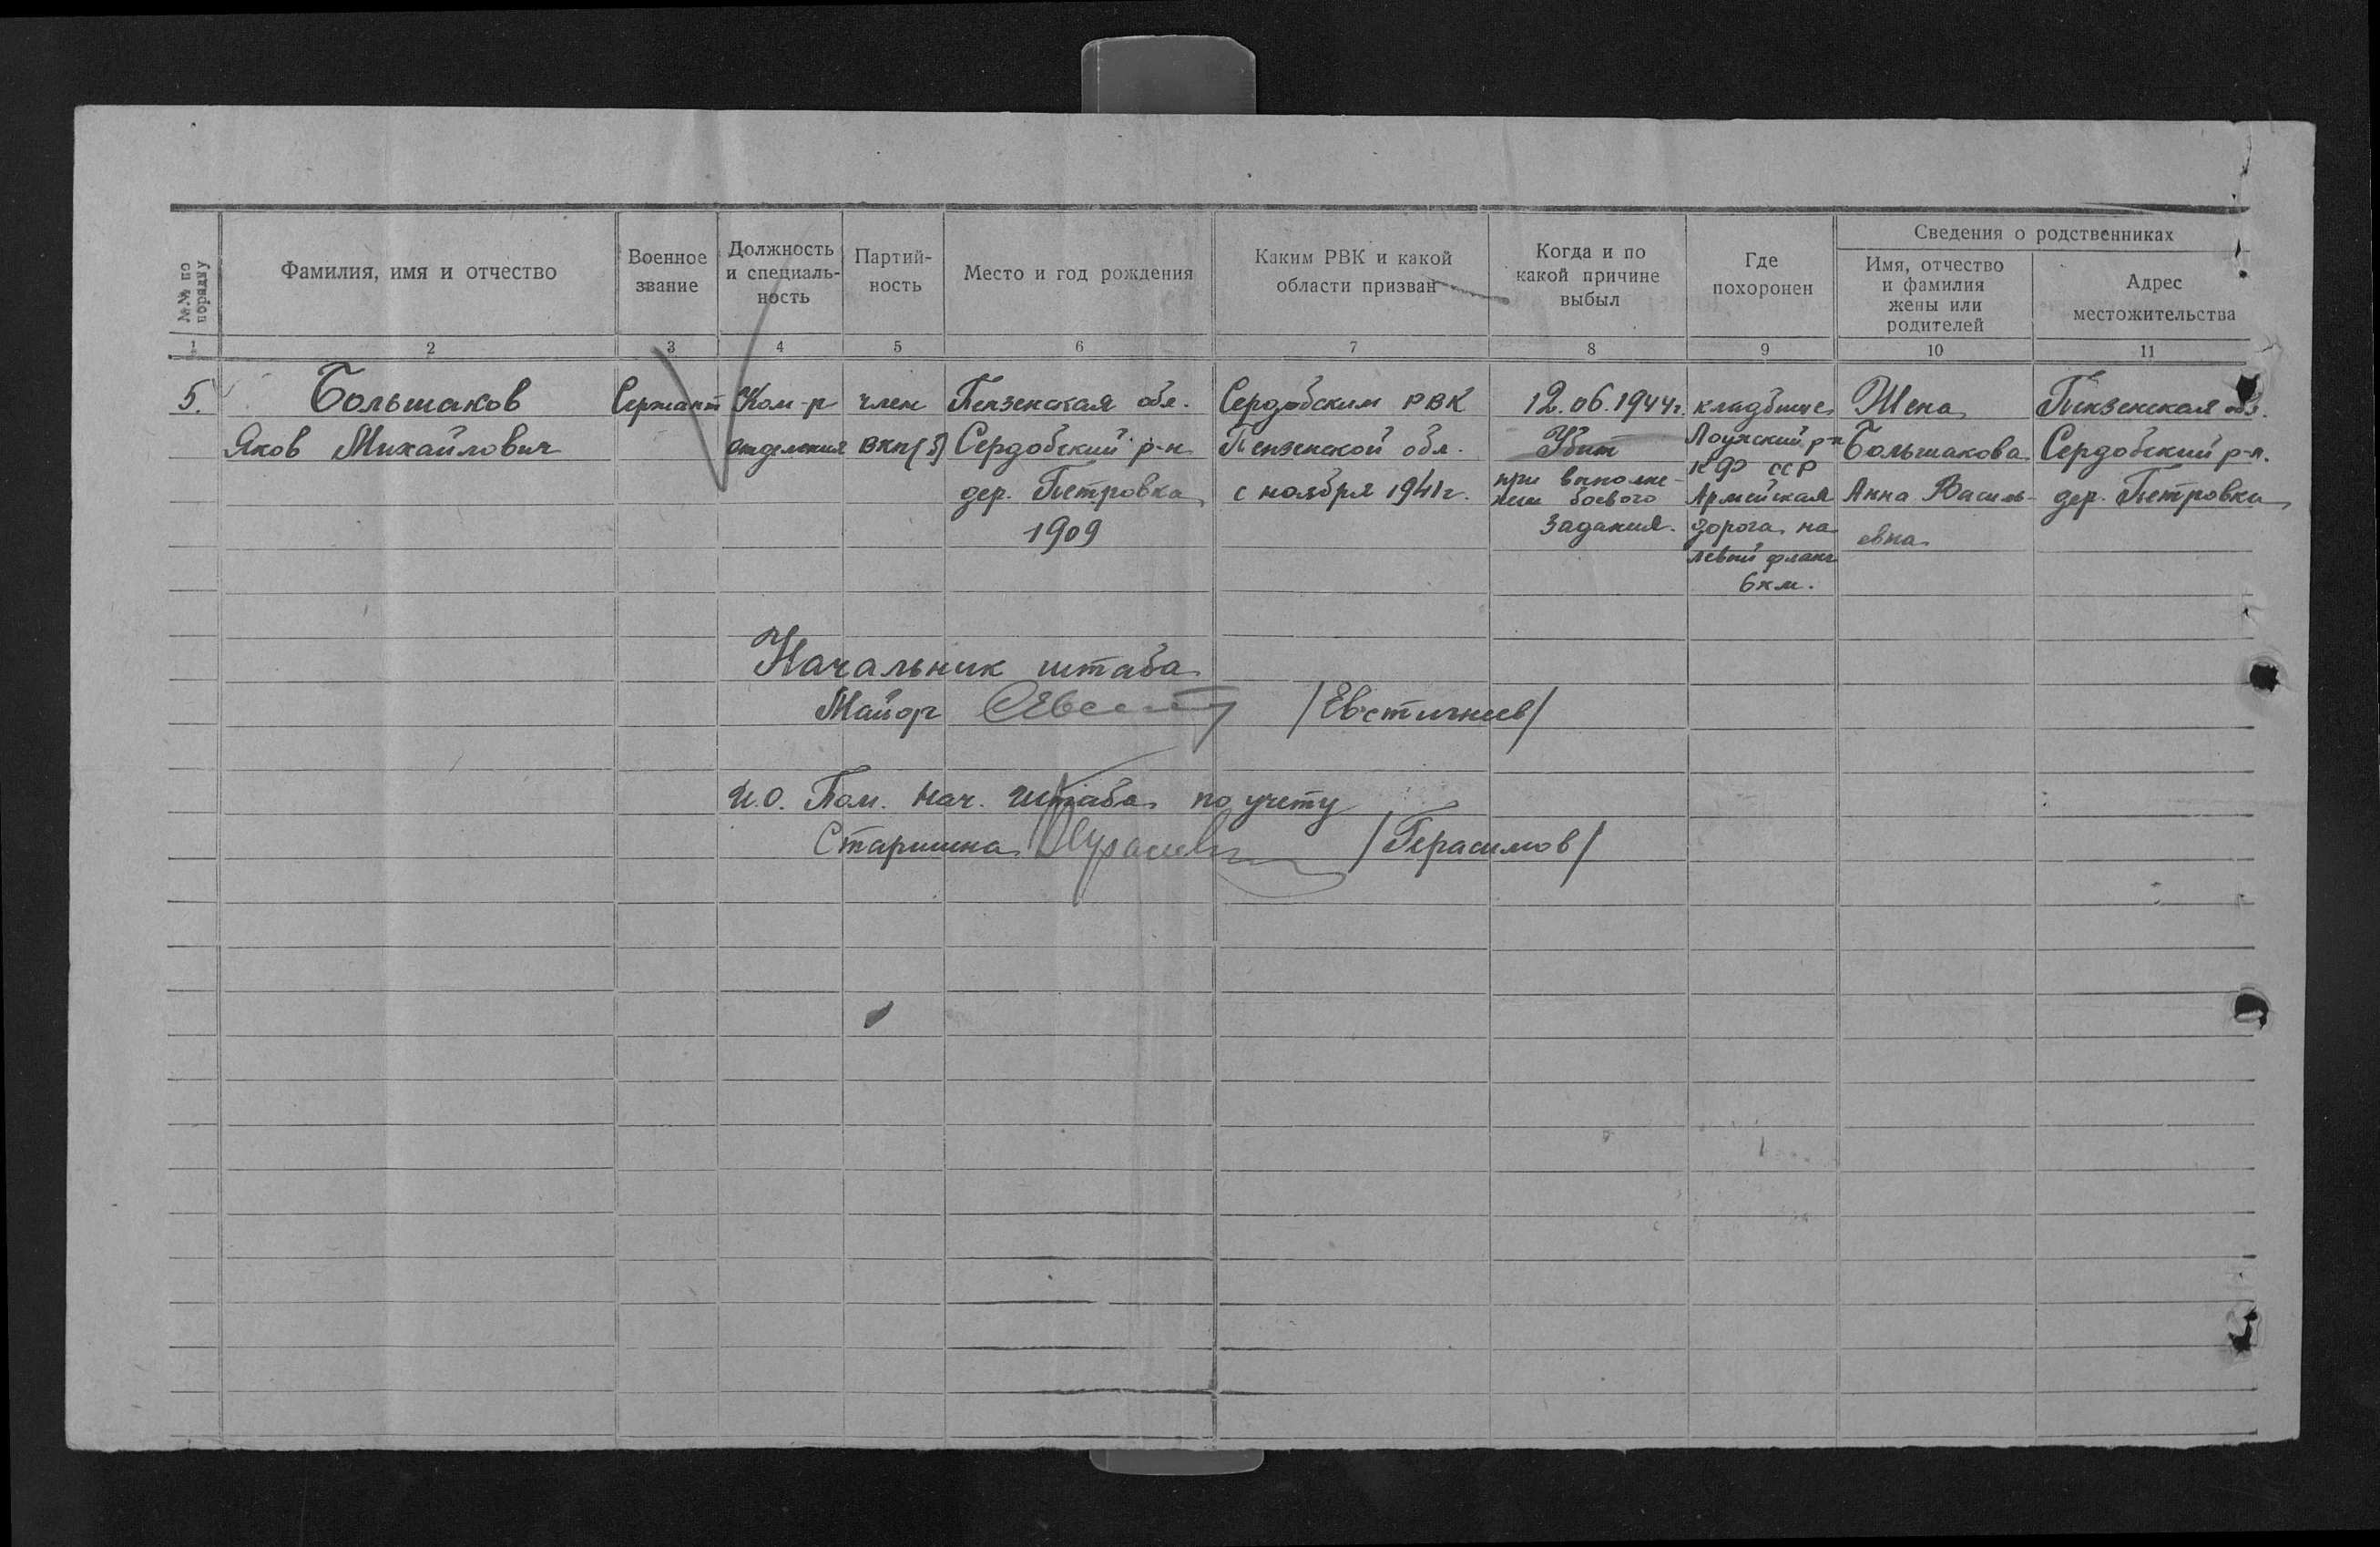 №№ по порядку
Фамилия, имя и отчество
Военное звание
Должность и специаль-ность
Партий-ность
Место и год рождения
Каким РВК и какой области призван
Когда и по какой причине выбыл
Где похоронен
Сведения о родственниках
Имя, отчество и фамилия жены или родителей
Адрес местожительства
1 2 3 4 5 6 7 8 9 10 11
5.
Большаков
Яков Михайлович
Сержант
Ком-р
отделения
член
ВКП(б)
Пензенская обл.
Сердобский р-н
дер. Петровка
1909
Сердобским РВК
Пензенской обл.
с ноября 1941г.
12.06.1944г.
Убит
при выполне-
нии боевого
задания.
кладбище
Лоухский р-н
КФ ССР
Армейская
дорога на
левый фланг
6 км.
Жена
Большакова
Анна Василь-
евна
Пензенская обл.
Сердобский р-н.
дер. Петровка
Начальник штаба
Майор /Евстигнеев/
И.О. Пом. Нач. штаба по учету
Старшина /Герасимов/